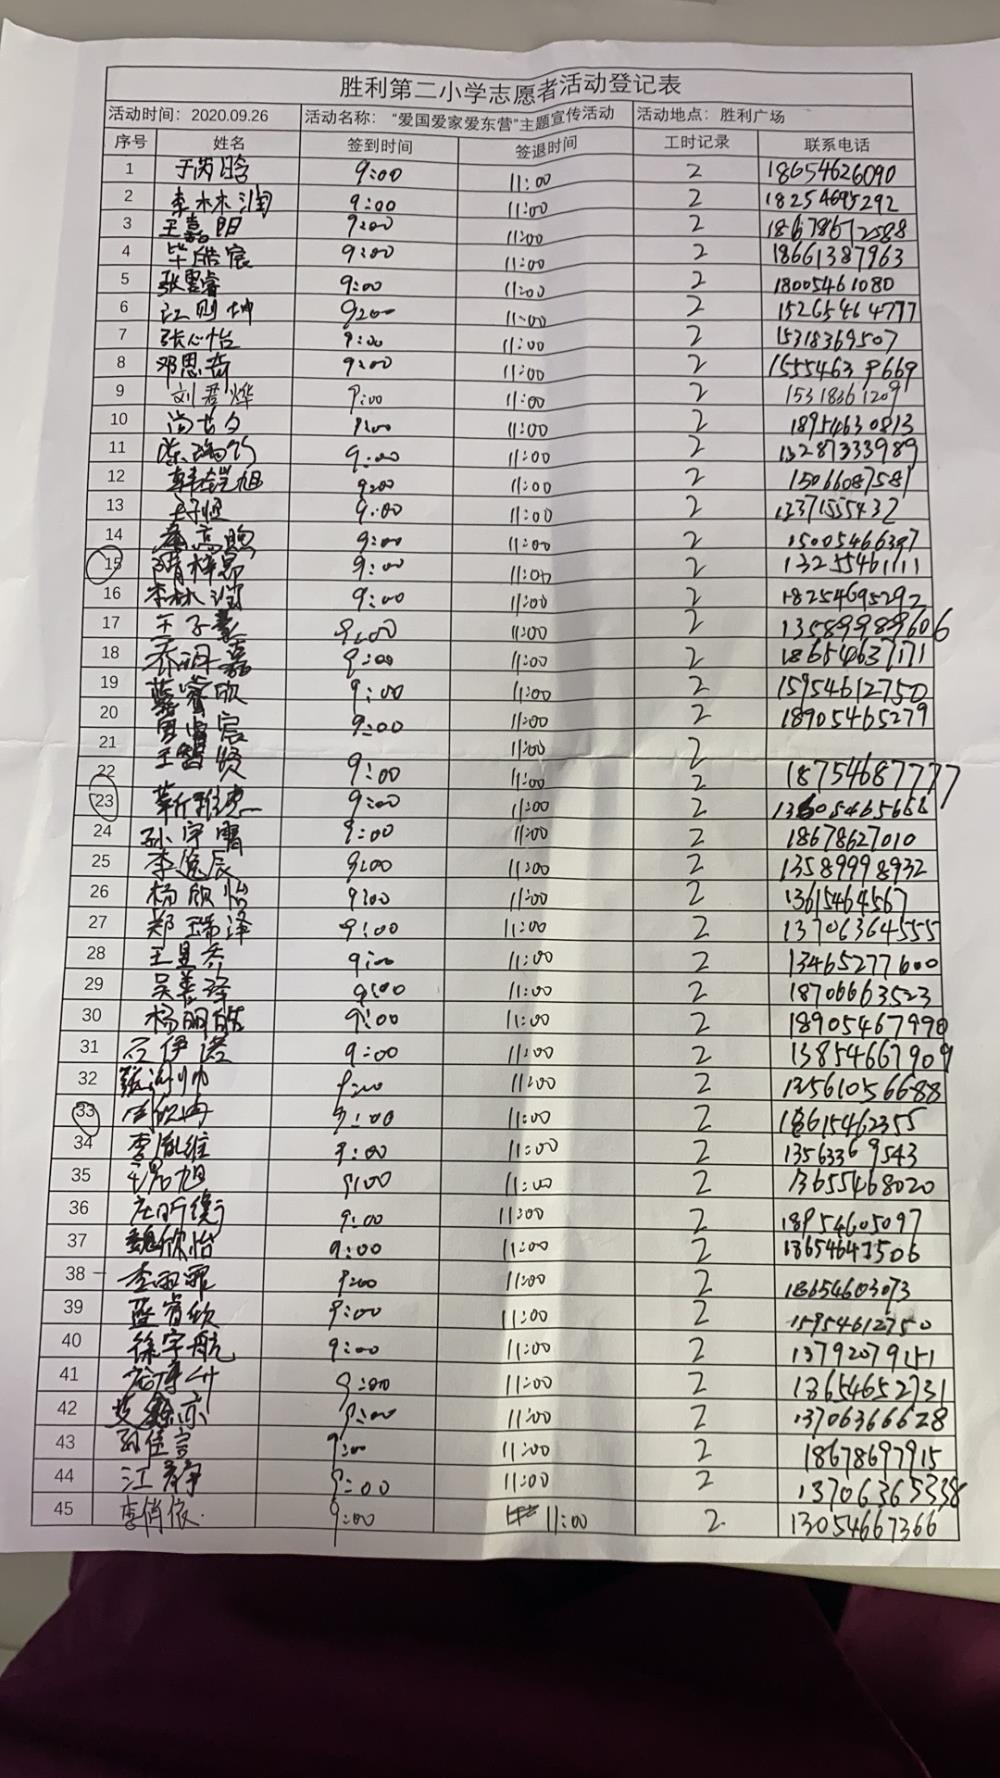 胜利第二小学志愿者活动登记表
活动时间：2020.09.26 活动名称：“爱国爱家爱东营”主题宣传活动 活动地点：胜利广场
序号 姓名 签到时间 签退时间 工时记录 联系电话
1 于芮晗 9:00 11:00 2 18654626090
2 李林润 9:00 11:00 2 18254695292
3 王嘉阳 9:00 11:00 2 18678672588
4 毕皓宸 9:00 11:00 2 18661387963
5 张睿 9:00 11:00 2 18005461080
6 江则坤 9:00 11:00 2 15265464777
7 张心怡 9:00 11:00 2 15318369507
8 邓思奇 9:00 11:00 2 15554639669
9 刘君烨 9:00 11:00 2 15318361209
10 尚芸夕 9:00 11:00 2 18954630813
11 陈瑞竹 9:00 11:00 2 13287333989
12 韩铠旭 9:00 11:00 2 15066087581
13 9:00 11:00 2 13371555432
14 9:00 11:00 2 15005466397
15 隋梓昂 9:00 11:00 2 13255461111
16 李林润 9:00 11:00 2 18254695292
17 王子 9:00 11:00 2 13589989606
18 乔玥嘉 9:00 11:00 2 18654637171
19 蓝睿欣 9:00 11:00 2 15954612750
20 宸 9:00 11:00 2 18905465279
21 王智贤 11:00 2
22 9:00 11:00 2 18754687777
23 靳雅 9:00 11:00 2
24 孙宇霄 9:00 11:00 2 18678627010
25 李逸辰 9:00 11:00 2 13589998932
26 杨欣怡 9:00 11:00 2 13615464567
27 郑瑞泽 9:00 11:00 2 13706364555
28 王昱乔 9:00 11:00 2 13465277600
29 吴善泽 9:00 11:00 2 18706663523
30 杨明皓 9:00 11:00 2 18905467990
31 伊诺 9:00 11:00 2 13854667909
32 张 帅 9:00 11:00 2 13561056688
33 周欣冉 9:00 11:00 2 18615462355
34 李胤维 9:00 11:00 2 13563369543
35 旭 9:00 11:00 2 13655468020
36 庄昕衡 9:00 11:00 2 18954605097
37 魏欣怡 9:00 11:00 2 18654643506
38 李雨霏 9:00 11:00 2 18654603073
39 蓝睿欣 9:00 11:00 2 15954612750
40 徐宇航 9:00 11:00 2 13792079151
41 9:00 11:00 2 18654652731
42 艾 亦 9:00 11:00 2 13706366628
43 孙佳言 9:00 11:00 2 18678697915
44 江 9:00 11:00 2 13706365338
45 李俏依 9:00 11:00 2 13054667366